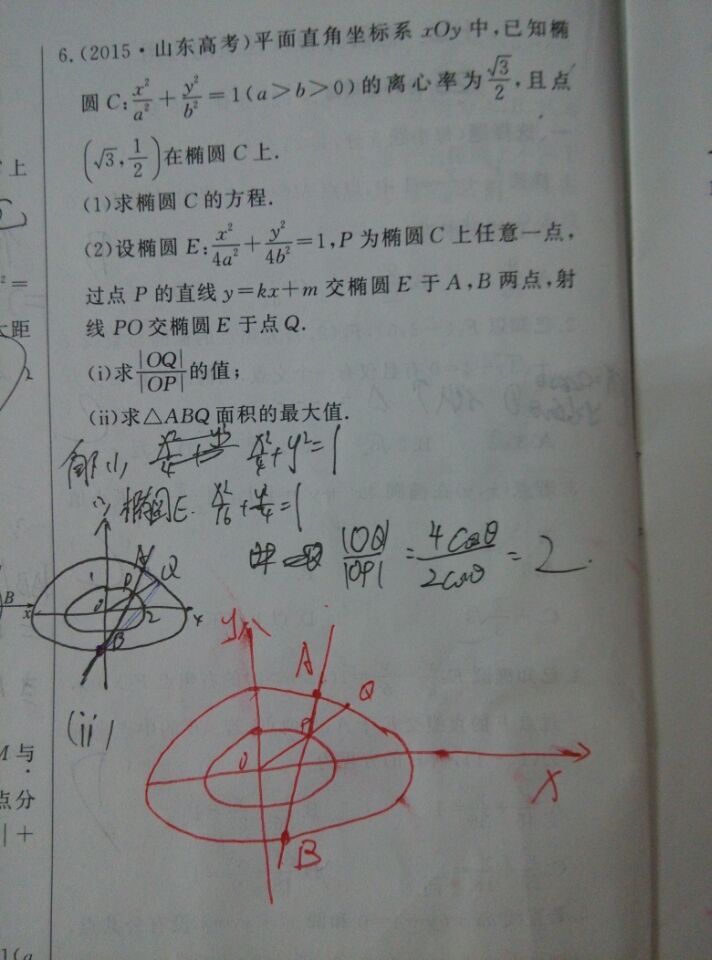 6.(2015·山东高考)平面直角坐标系 xOy 中,已知椭
圆 C:x²/a²+y²/b²=1(a>b>0)的离心率为√3/2,且点
(√3,1/2)在椭圆 C 上.
(1)求椭圆 C 的方程.
(2)设椭圆 E:x²/4a²+y²/4b²=1,P 为椭圆 C 上任意一点,
过点 P 的直线 y=kx+m 交椭圆 E 于 A,B 两点,射
线 PO 交椭圆 E 于点 Q.
(i)求|OQ|/|OP|的值;
(ii)求△ABQ 面积的最大值.
x²/4+y²=1
椭圆E x²/16+y²/4=1
|OQ|/|OP|=4cosθ/2cosθ=2.
A Q
P
O 2 4
B
(ii)
y
A
Q
P
O
x
B
上
=
大距
B
M 与
点分
|+
l(a